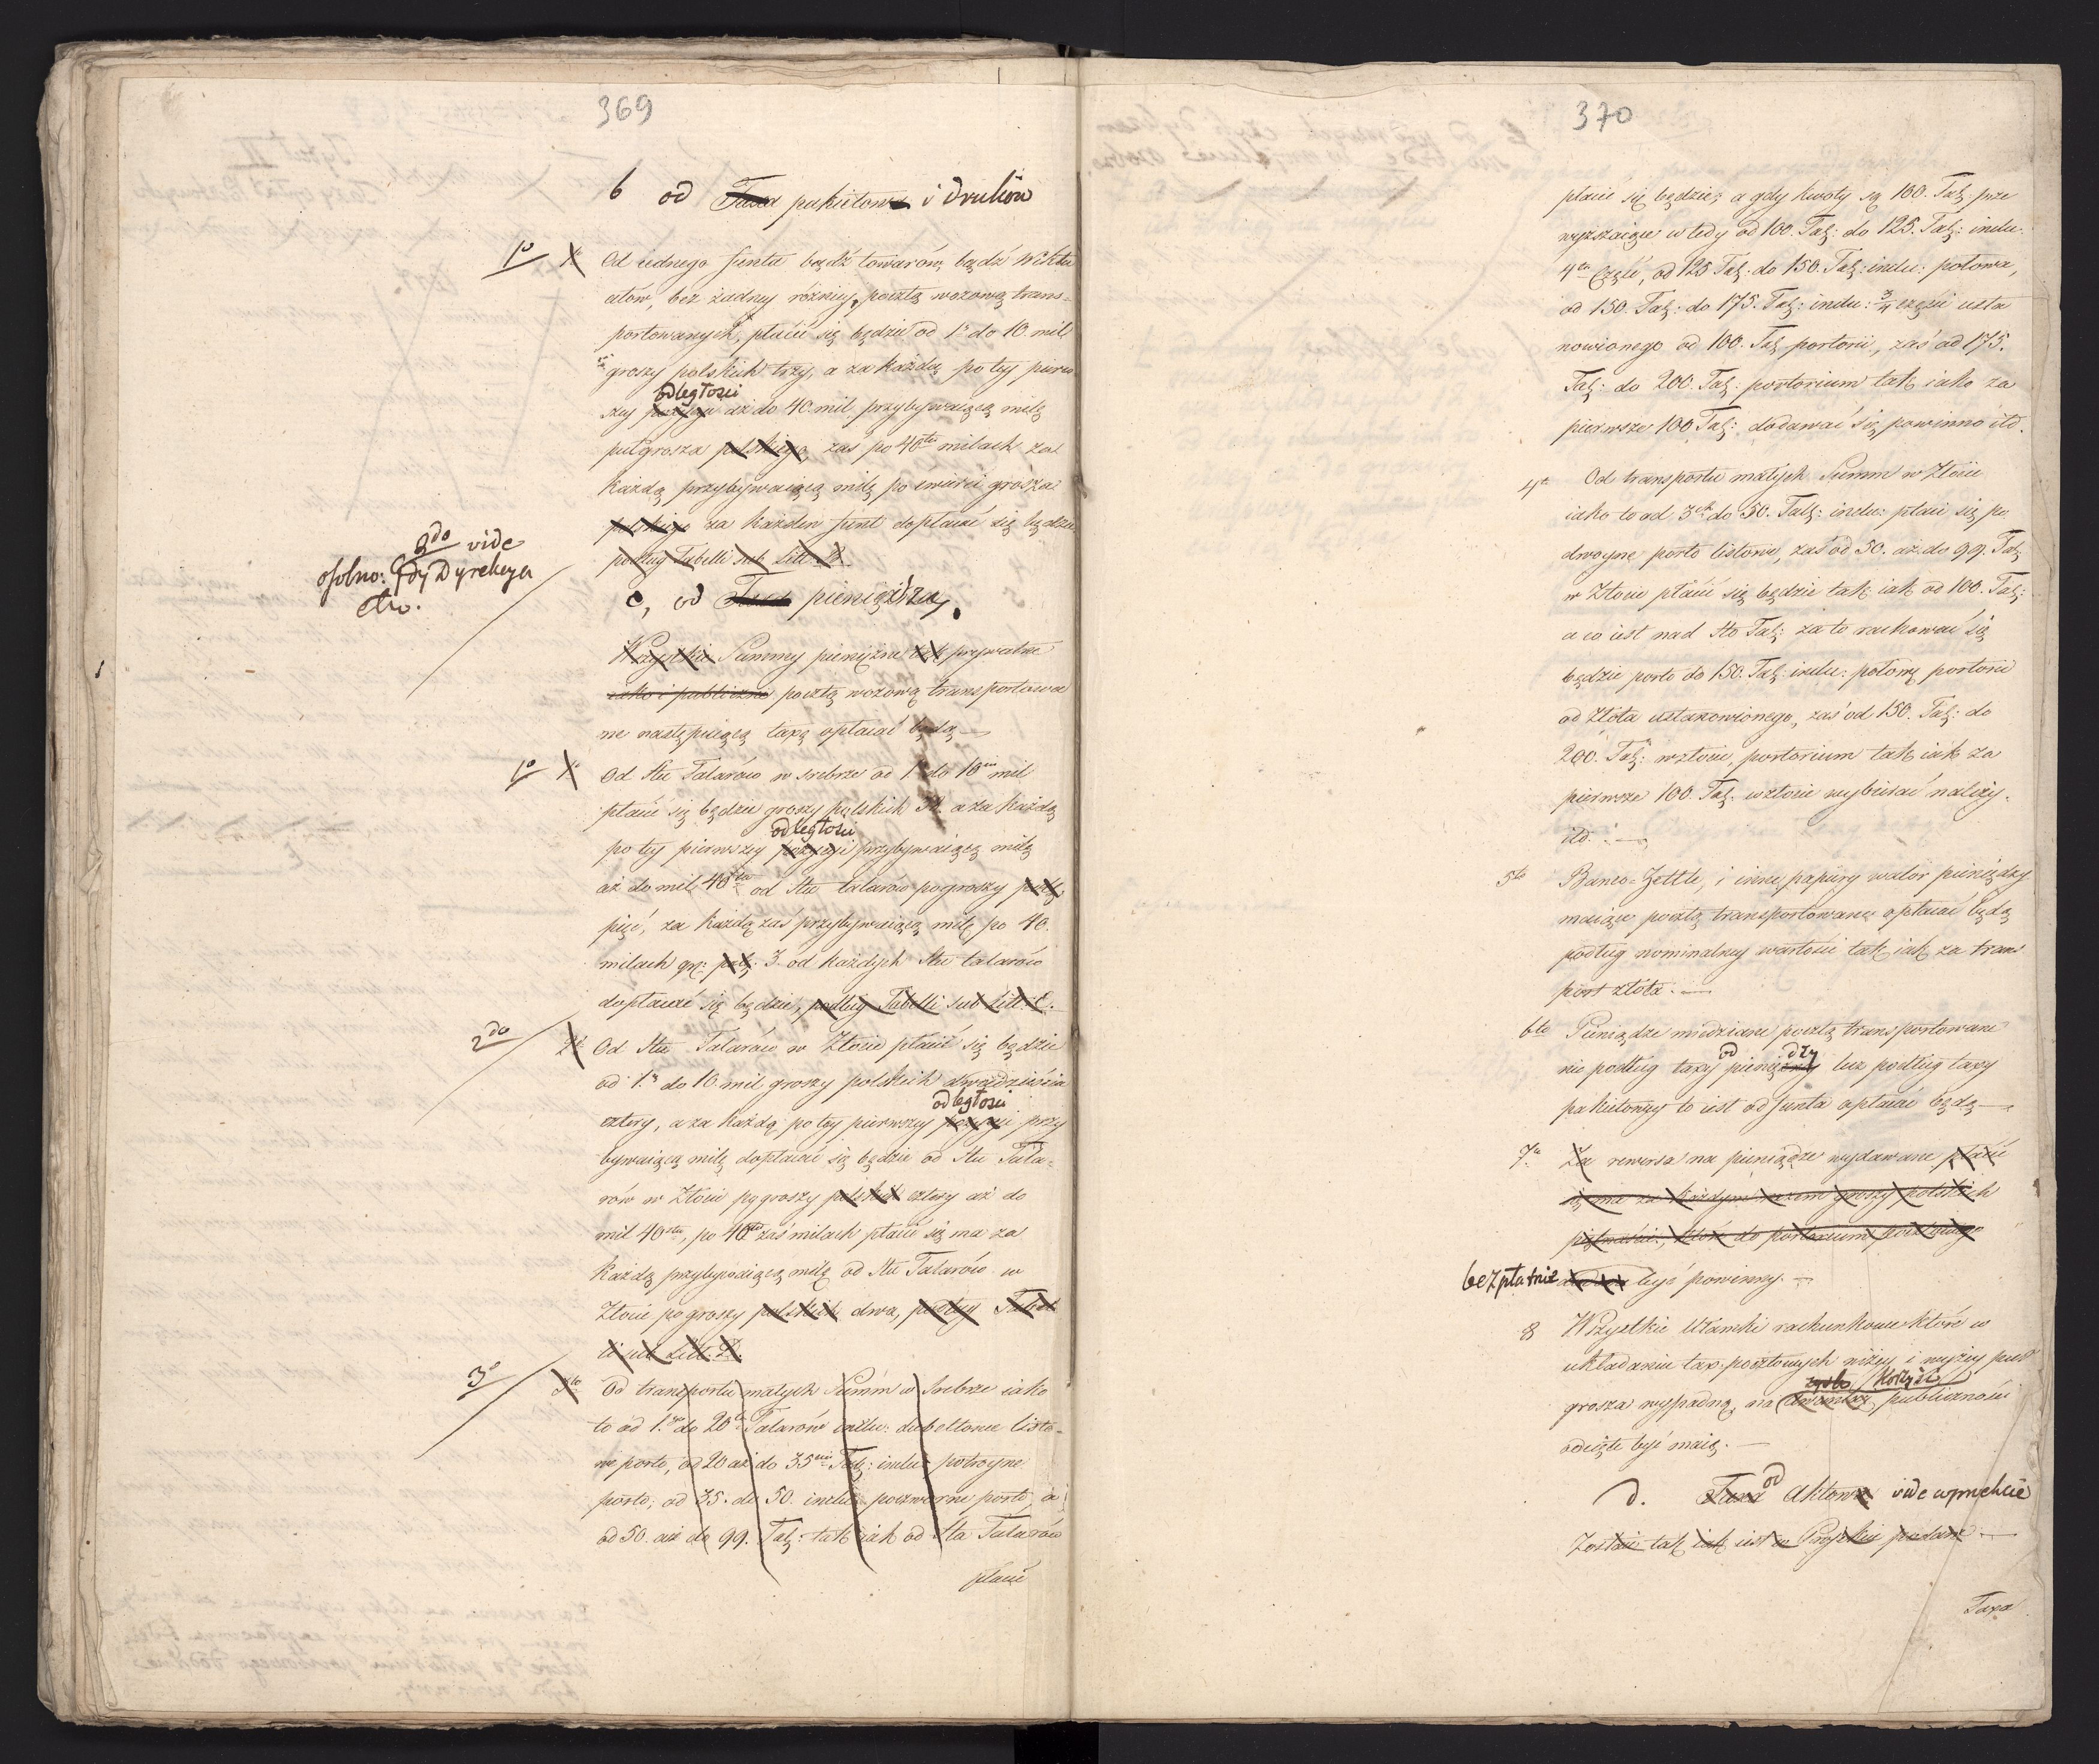 369
b od Taxa pakietowa i druków
1o 1o Od iednego funta bądź towarów, bądź Wiktu
ałów, bez żadney różnicy, pocztą wozową trans-
portowanych, płacić się będzie od 1. do 10. mil
groszy polskich trzy, a za każdą po tey pierw
odległosci
szey pozycyi aż do 40. mil przybywaiącą milę
pułgrosza polskiego, zaś po 40tu milach za
każdą przybywaiącą milę po ćwierci grosza
polskiego za każden funt dopłacać się będzie
podług Tabelli sub Litt. B.
2do vide
osobno: Gdy Dyrekcya
etc.
C, od Taxa pieniężna,
Wszystkie Summy pieniężne tak prywatne
iako i publiczne pocztą wozową transportowa
ne następuiącą taxę opłacać będą —
1o 1o Od Stu Talarów w srebrze od 1. do 10ciu mil
płacić się będzie groszy polskich 30. a za każdą
odległosci
po tey pierwszey pozycyi przybywaiącą milę
aż do mil 40tu od Stu talarów po groszy pols:
pięć, za każdą zaś przybywaiącą milę po 40.
milach gr: pols: 3. od każdych Stu talarów
dopłacać się będzie, podług Tabelli sub Litt: C.
2do 2do Od Stu Talarów w Złocie płacić się będzie
od 1. do 10. mil groszy polskich dwadzieścia
odległosci
cztery, a za każdą po tey pierwszey pozycyi przy
bywaiącą milę dopłacać się będzie od Stu Tala-
rów w Złocie po groszy polskich cztery aż do
mil 40stu, po 40tu zaś milach płacić się ma za
każdą przybywaiącą milę od Stu Talarów w
Złocie po groszy polskich dwa, podług Tabel
li sub Litt. D.
3o 3tio Od transportu małych Summ w Srebrze iako
to od 1.go do 20tu Talarów inclu: dubeltowe listo-
we porto, od 20 aż do 35ciu Tal: inclu: potroyne
porto, od 35. do 50. inclu: poczworne porto, a
od 50. aż do 99. Tal: tak iak od Sta Talarów
płacić
370
płacić się będzie; a gdy kwoty są 100. Tal: prze
wyższaiące wtedy od 100. Tal: do 125. Tal: inclu:
4ta Część, od 125 Tal: do 150. Tal: inclu: połowa,
od 150. Tal: do 175. Tal: inclu: 3/4 części usta
nowionego od 100. Tal: portorii, zaś od 175.
Tal: do 200. Tal: portorium tak iako za
pierwsze 100 Tal: dodawać się powinno itd.
4to Od transportu małych Summ w Złocie
iako to od 3ch do 50. Tal: inclu: płaci się po
dwoyne porto listowe, zaś od 50. aż do 99. Tal:
w Złocie płacić się będzie tak iak od 100. Tal:
a co iest nad Sto Tal: za to rachować się
będzie porto do 150. Tal: inclu: połowę portorii
od Złota ustanowionego, zaś od 150. Tal: do
200. Tal: w złocie, portorium tak iak za
pierwsze 100. Tal: w złocie wybierać należy,
itd. —
5to Banco-Zettle, i inne papiery walor pieniędzy
maiące pocztą transportowane opłacać będą
podług nominalney wartości tak iak za trans
port złota. —
6to Pieniądze miedziane pocztą transportowane
od dzy
nie podług taxy pieniężney lecz podług taxy
pakietowey to iest od funta opłacać będą —
7o Za rewersa na pieniądze wydawane płacić
się ma za każdym razem groszy polskich
piętnaście, które do portorium pocztowego
bezpłatnie być powinny. —
8 Wszystkie Ułamki rachunkowe które w
układaniu tax pocztowych niżey i wyżey puł
zysko /korzyść/
grosza wypadną, na publiczności
odcięte być maią. —
od
d. Taxa Aktowa vide w projekcie
Zostaie tak iak iest w Projekcie podane —
Taxa